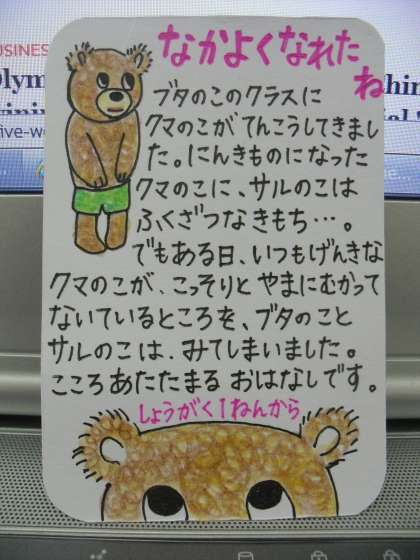 USINESS
Olym
ive-we
なかよくなれた
ね
ブタのこのクラスに
クマのこが てんこうしてきまし
た。にんきものになった
クマのこに、サルのこは
ふくざつなきもち…。
でもある日、いつもげんきな
クマのこが、こっそりと やまにむかって
ないているところを、ブタのこと
サルのこは、みてしまいました。
こころあたたまる おはなしです。
しょうがく1ねんから